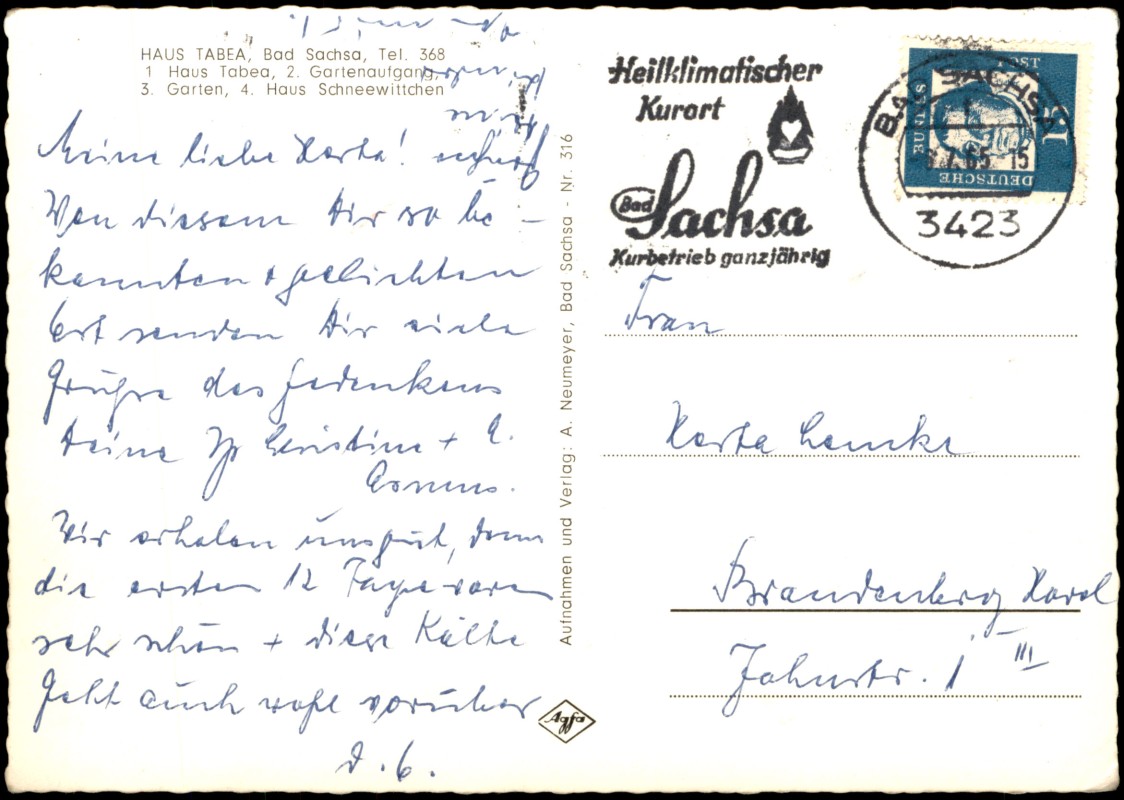 HAUS TABEA, Bad Sachsa, Tel. 368
1 Haus Tabea, 2. Gartenaufgang,
3. Garten, 4. Haus Schneewittchen
Meine liebe Herta!
Von diesem Dir so be-
kannten + geliebten
Ort senden Dir viele
Grüße des Gedenkens
Deine Christine +
Wir erholen uns gut, denn
die ersten 12 Tage waren
sehr schön + diese Kälte
geht auch wohl vorüber
D. O.
Aufnahmen und Verlag: A. Neumeyer, Bad Sachsa - Nr. 316
Agfa
Heilklimatischer
Kurort
Bad Sachsa
Kurbetrieb ganzjährig
BAD SACHSA
65-15
3423
DEUTSCHE
BUNDES
POST
15
Frau
Herta Lemke
Brandenberg Havel
Jahnstr. 1 III